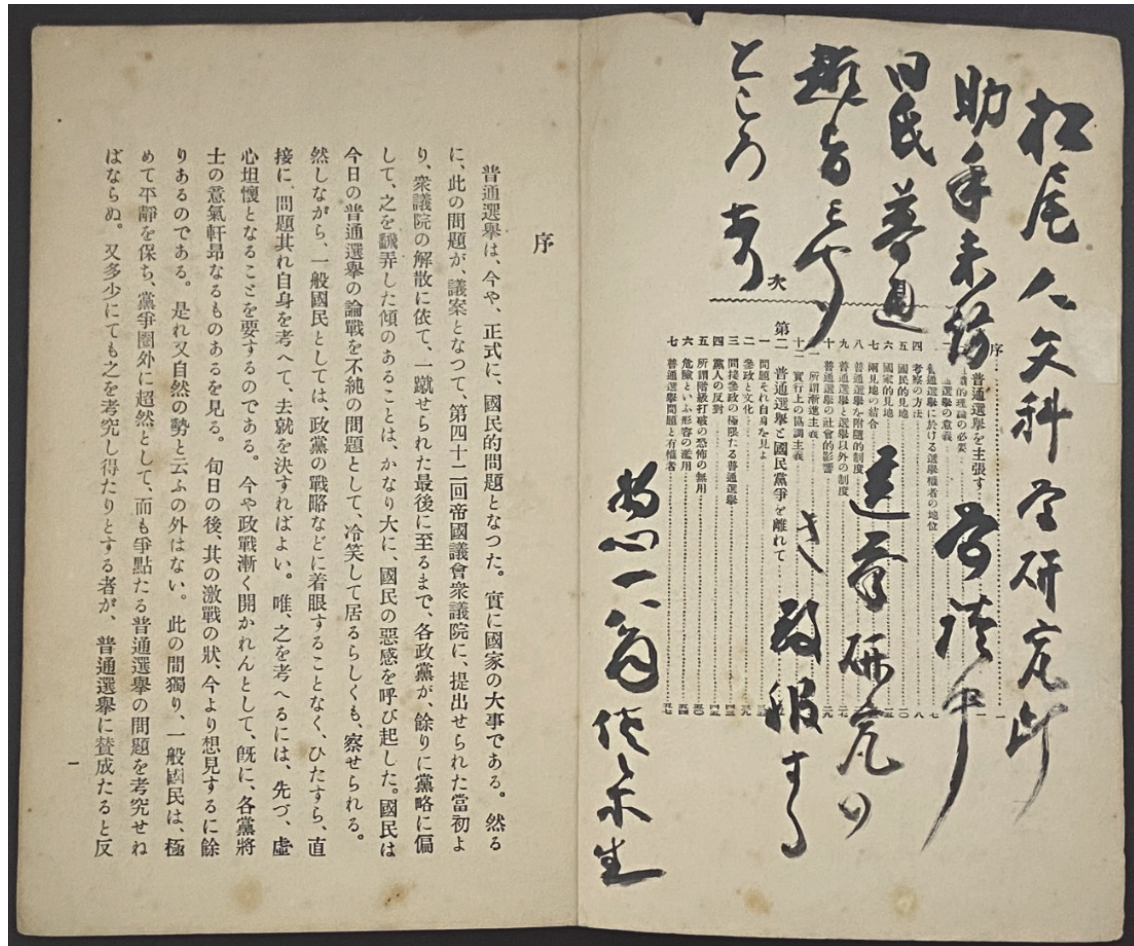 松尾人文科学研究所
助手来訪
同氏普通選挙研究の
ところあり
次
序
普通選擧を主張す
的理論の必要
選擧の意義
普通選擧に於ける選擧權者の地位 七
四 考察の方法 八
五 國民的見地 一〇
六 國家的見地
七 兩見地の結合
八 普通選擧を附隨的制度
九 普通選擧と選擧以外の制度 二七
十 普通選擧の社會的影響 二九
所謂漸進主義
十二 實行上の協調主義
第二 普通選擧と國民黨爭を離れて
一 問題それ自身を見よ
二 參政と文化 三九
三 間接參政の極限たる普通選擧 四三
四 黨人の反對 四五
五 所謂階級打破の恐怖の無用 五〇
六 危險といふ形容の濫用 五四
七 普通選擧問題と有權者 五七
序
普通選擧は、今や、正式に、國民的問題となつた。實に國家の大事である。然る
に、此の問題が、議案となつて、第四十二回帝國議會衆議院に、提出せられた當初よ
り、衆議院の解散に依て、一蹴せられた最後に至るまで、各政黨が、餘りに黨略に偏
して、之を飜弄した傾のあることは、かなり大に、國民の惡感を呼び起した。國民は
今日の普通選擧の論戰を不純の問題として、冷笑して居るらしくも、察せられる。
然しながら、一般國民としては、政黨の戰略などに着眼することなく、ひたすら、直
接に、問題其れ自身を考へて、去就を決すればよい。唯、之を考へるには、先づ、虛
心坦懷となることを要するのである。今や政戰漸く開かれんとして、旣に、各黨將
士の意氣軒昂なるものあるを見る。旬日の後、其の激戰の狀、今より想見するに餘
りあるのである。是れ又自然の勢と云ふの外はない。此の間獨り、一般國民は、極
めて平靜を保ち、黨爭圈外に超然として、而も爭點たる普通選擧の問題を考究せね
ばならぬ。又多少にても之を考究し得たりとする者が、普通選擧に賛成たると反
一